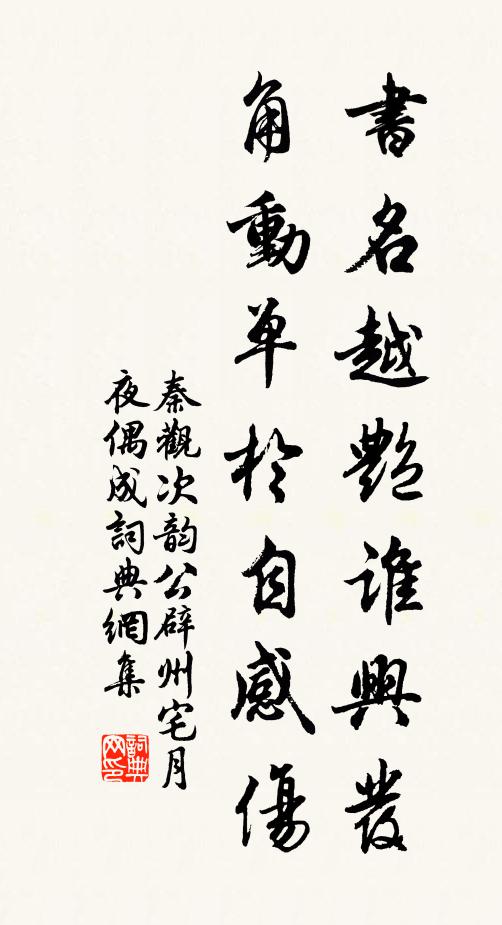 書名越艷誰興發
角動单於自感傷
秦觀次韵公辟州宅月
夜偶成詞典網集
詞典
网印